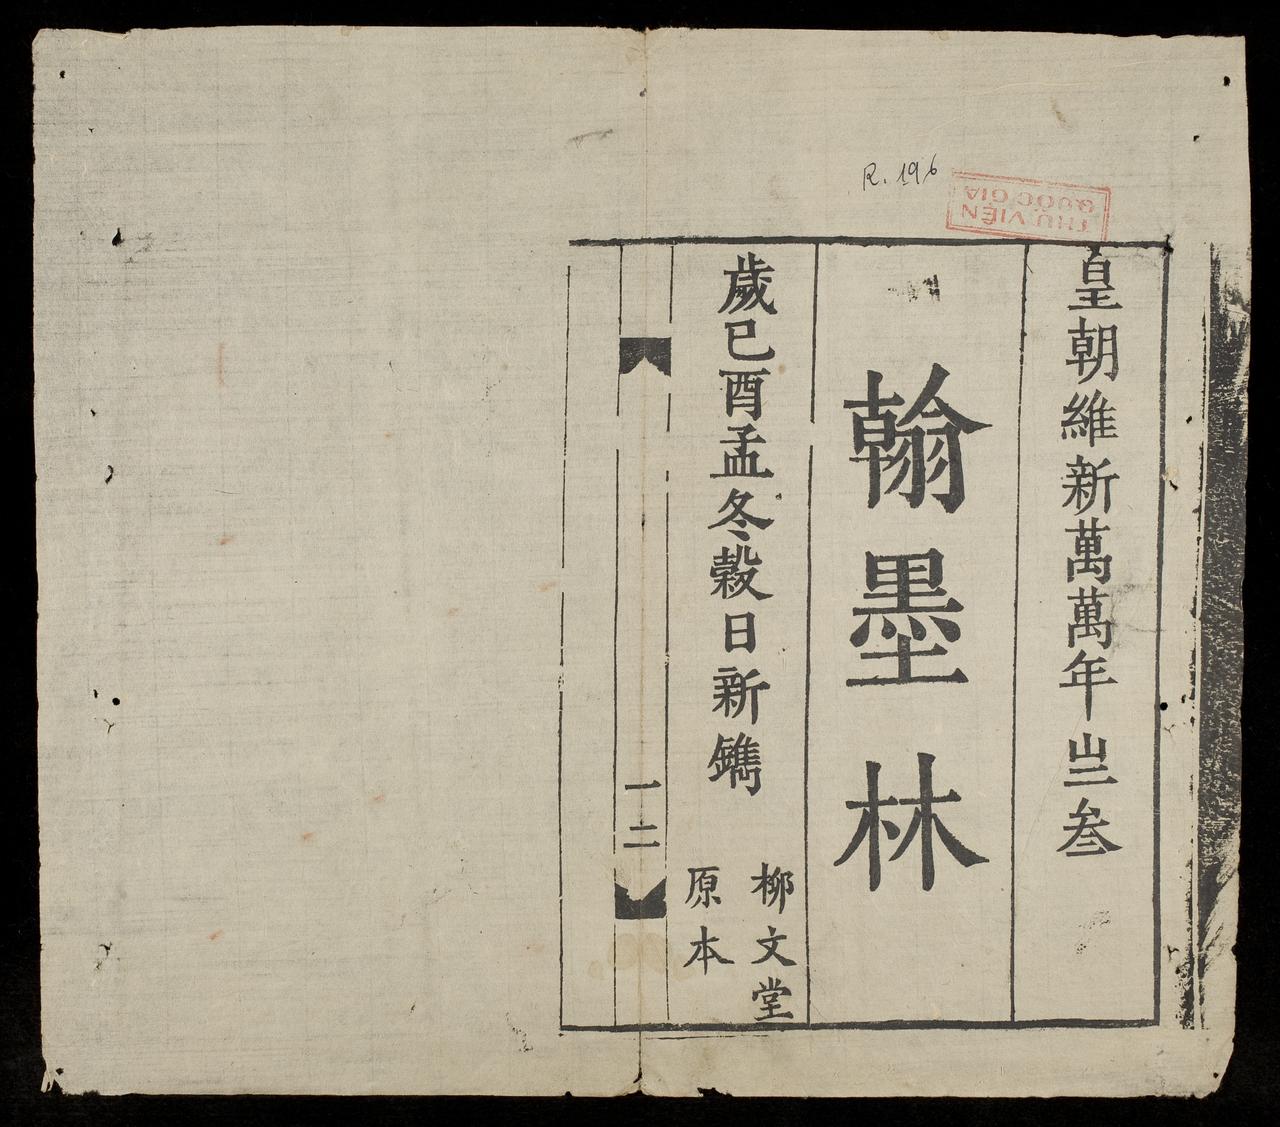 R. 196
THƯ VIỆN
QUỐC GIA
皇朝維新萬萬年𡴯叁
翰墨林
歲已酉孟冬穀日新鐫
柳文堂
原本
一二